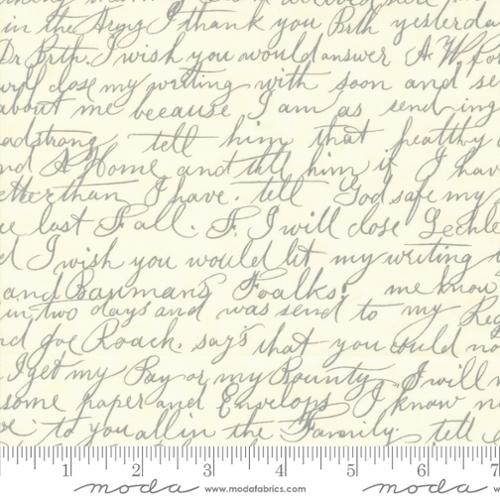 in the Army I thank you Brth yesterda
Dr Brth. I wish you would answer A. W. Fo
will close my writing with soon and se
about me because I am as sending
adstrong tell him that healthy
nd A Home and tell him if I hav
etter than I have. tell God safe my
e last Fall. F. I will close Lechle
d I wish you would let my writing
and Baumans Foalks, me know
in two days and was send to my Reg
nd Joe Roach. says that you could no
I get my Pay or my Bounty. I will
some paper and Envelops I know n
to you all in the Family. tell
1 2 3 4 5 6 7
moda www.modafabrics.com moda www.modafabrics.com m